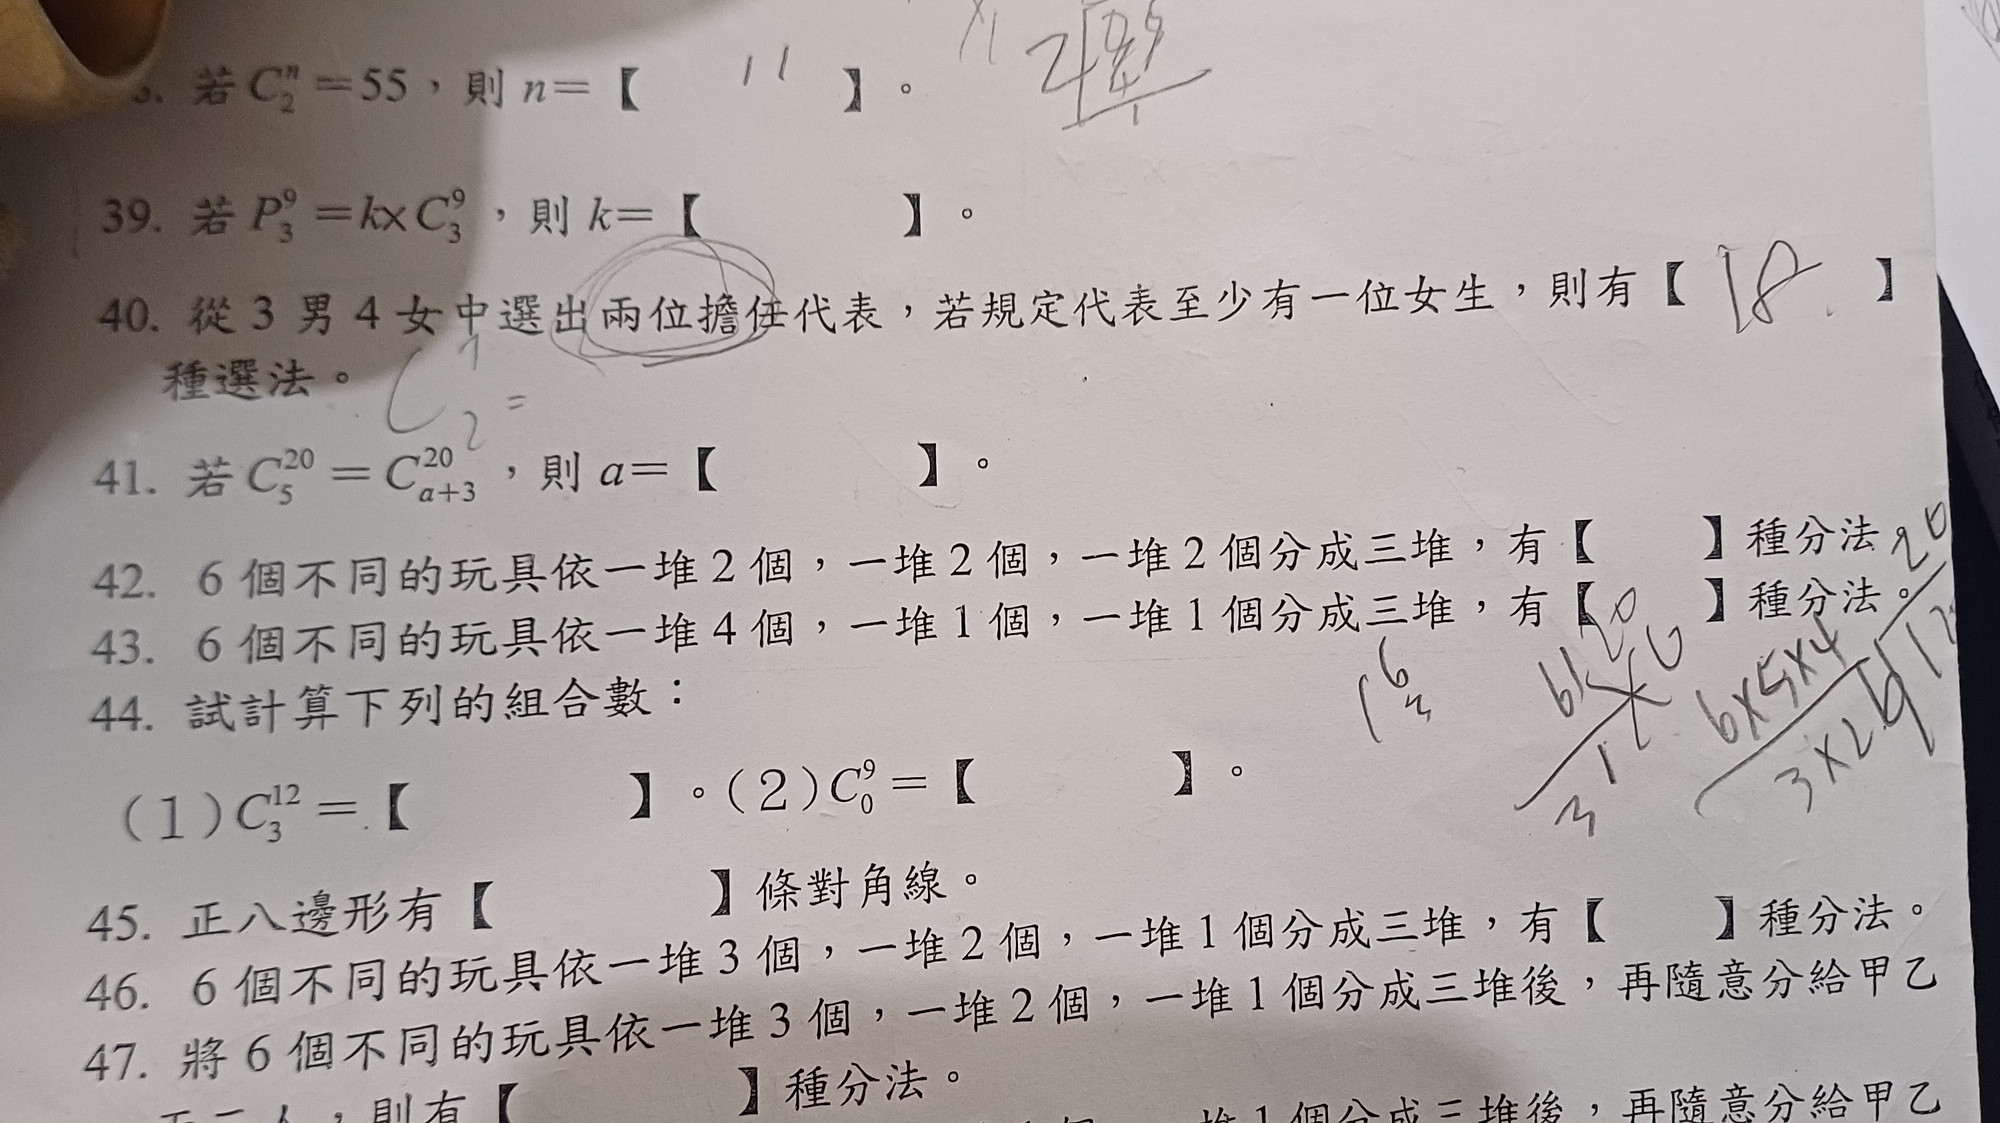 若 C₂ⁿ = 55，則 n=【 11 】。
39. 若 P₃⁹ = k×C₃⁹，則 k=【 】。
40. 從 3 男 4 女中選出兩位擔任代表，若規定代表至少有一位女生，則有【 18 】
種選法。
C₂⁷ =
41. 若 C₅²⁰ = C²⁰ₐ₊₃，則 a=【 】。
42. 6 個不同的玩具依一堆 2 個，一堆 2 個，一堆 2 個分成三堆，有【 】種分法。
43. 6 個不同的玩具依一堆 4 個，一堆 1 個，一堆 1 個分成三堆，有【 】種分法。
44. 試計算下列的組合數：
6×5×4
3×2
(1) C₃¹² =【 】。(2) C₀⁹ =【 】。
45. 正八邊形有【 】條對角線。
46. 6 個不同的玩具依一堆 3 個，一堆 2 個，一堆 1 個分成三堆，有【 】種分法。
47. 將 6 個不同的玩具依一堆 3 個，一堆 2 個，一堆 1 個分成三堆後，再隨意分給甲乙
丙三人，則有【 】種分法。
一堆 1 個分成三堆後，再隨意分給甲乙